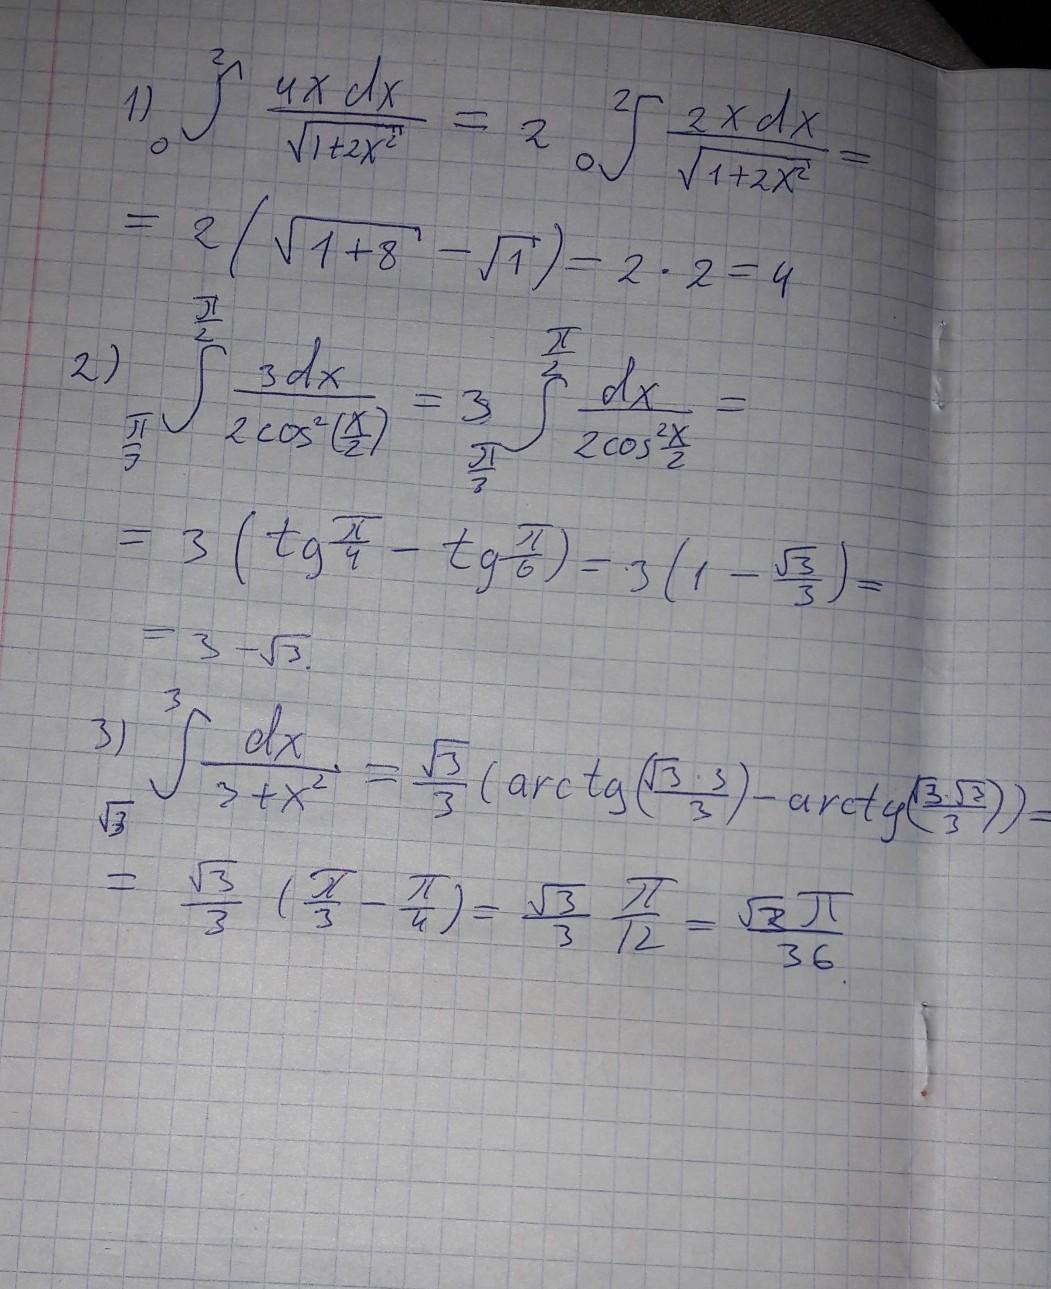 1) ₀∫² 4x dx / √(1+2x²) = 2 ₀∫² 2x dx / √(1+2x²) =
= 2 (√(1+8) − √1) = 2 · 2 = 4
2) ∫_{π/3}^{π/2} 3dx / (2cos²(x/2)) = 3 ∫_{π/3}^{π/2} dx / (2cos² x/2) =
= 3 (tg π/4 − tg π/6) = 3 (1 − √3/3) =
= 3 − √3.
3) ∫_{√3}^{3} dx / (3+x²) = √3/3 (arctg(√3·3/3) − arctg(√3·√3/3)) =
= √3/3 (π/3 − π/4) = √3/3 π/12 = √3 π/36.